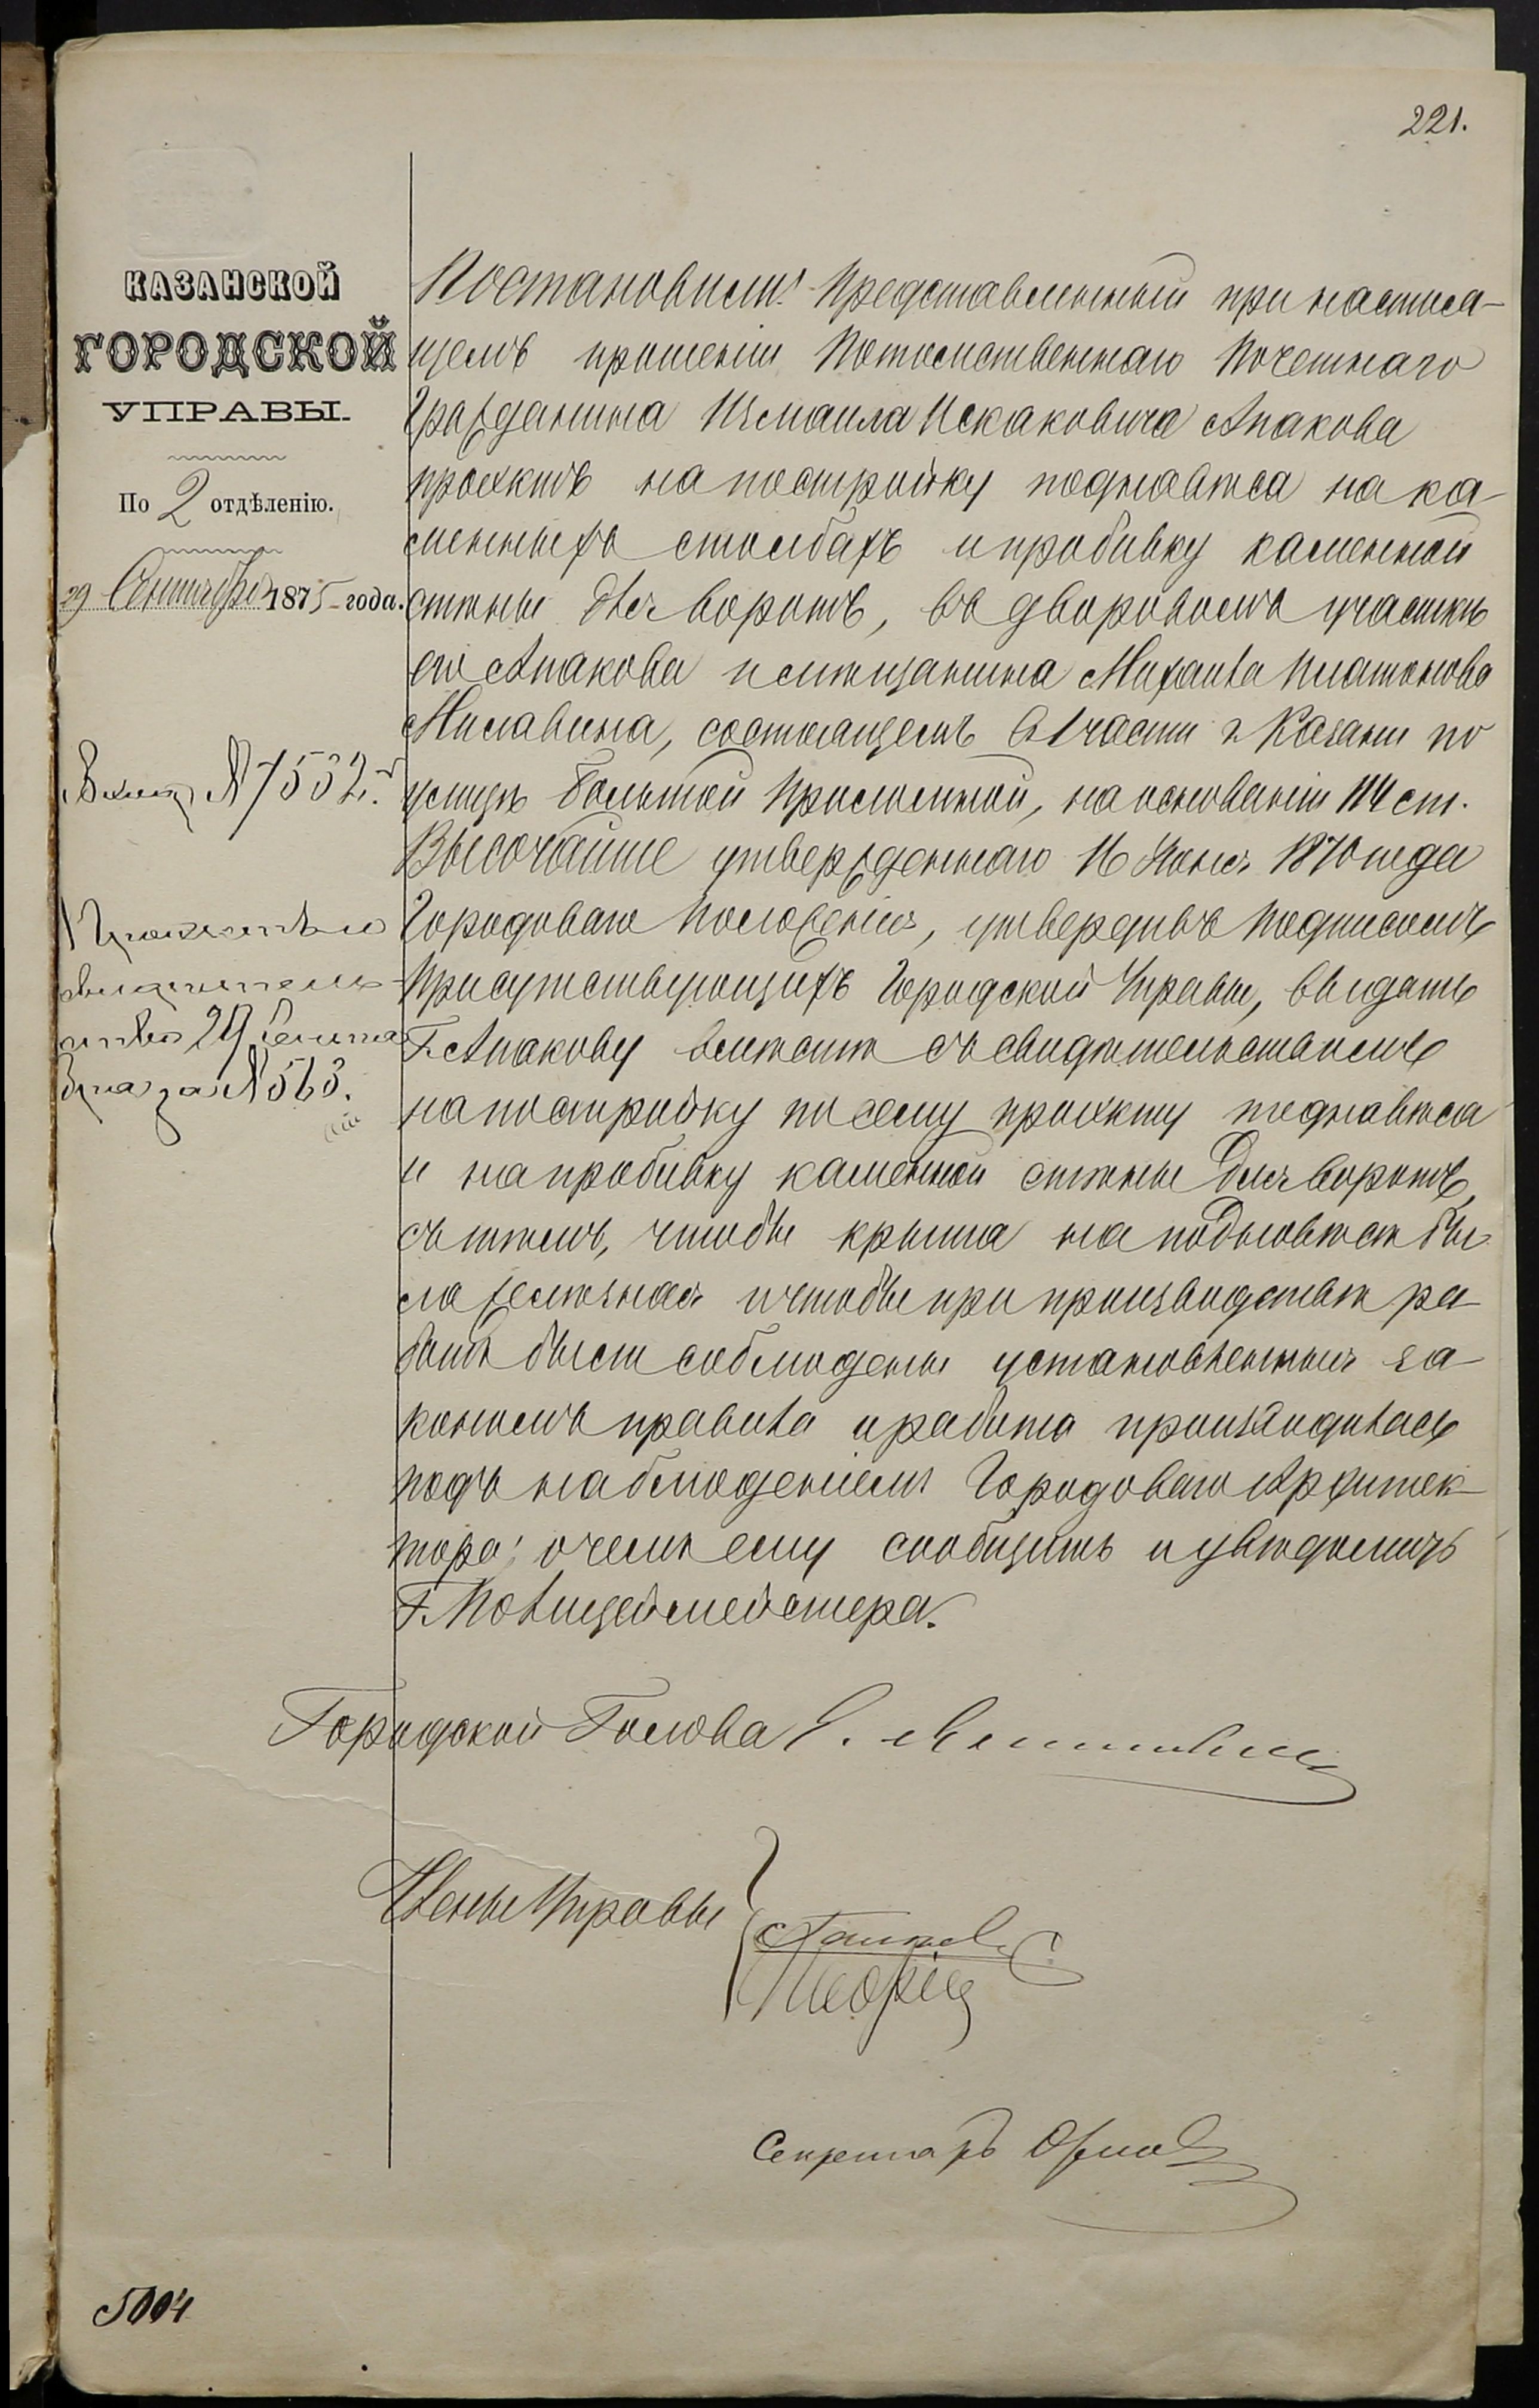 221.
КАЗАНСКОЙ
ГОРОДСКОЙ
УПРАВЫ.
По 2 отдѣленію.
29 Сентября 1875 года.
Вход. № 7532.
Проектъ и
свидѣтель-
ство 29 Сентя
бря за № 563.
Постановили: Представленный при настоя-
щемъ прошеніи Потомственнаго Почетнаго
Гражданина Измаила Искаковича Апакова
проэктъ на постройку поднавѣса на ка-
менныхъ столбахъ и пробивку каменной
стѣны для воротъ, въ дворовомъ участкѣ
его Апакова и мѣщанина Михаила Платонова
Милавина, состоящемъ въ 1 части г. Казани по
улицѣ Большой Проломной, на основаніи 114 ст.
Высочайше утвержденнаго 16 Іюня 1870 года
Городоваго Положенія, утвердивъ подписомъ
Присутствующихъ Городской Управы, выдать
Г. Апакову вмѣстѣ съ свидѣтельствомъ
на постройку по сему проэкту поднавѣса
и на пробивку каменной стѣны для воротъ,
съ тѣмъ, чтобы крыша на поднавѣсѣ бы-
ла желѣзная и чтобы при производствѣ ра-
ботъ были соблюдены установленныя за-
кономъ правила и работа производилась
подъ наблюденіемъ Городоваго Архитек-
тора; о чемъ ему сообщить и увѣдомить
Г. Полицеймейстера.
Городской Голова
Члены Управы
Секретарь Орлов
5004